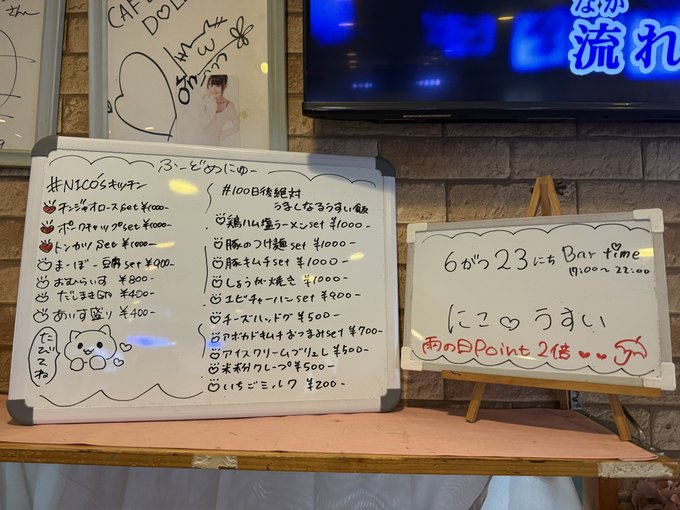 さん
CAFE
DOLL
なが
流れ
ふーどめにゅー
#NICO'sキッチン
チンジャオロースset ¥1000-
ポークチャップset ¥1000-
トンカツ set ¥1000-
まーぼー豆腐set ¥900-
おむらいす ¥800-
だしまき ¥400-
あいす盛り ¥400-
たびてね
#100日後絶対
うまくなるうすい飯
鶏ハム塩ラーメンset ¥1000-
豚のつけ麺set ¥1000-
豚キムチset ¥1000-
しょうが焼き ¥1000-
エビチャーハンset ¥900-
チーズハットグ ¥500-
アボカドキムチおつまみset ¥700-
アイスクリームブリュレ ¥500-
米粉クレープ ¥500-
いちごミルク ¥200-
6がつ23にち Bar time
17:00~22:00
にこ♡うすい
雨の日Point2倍♥♥